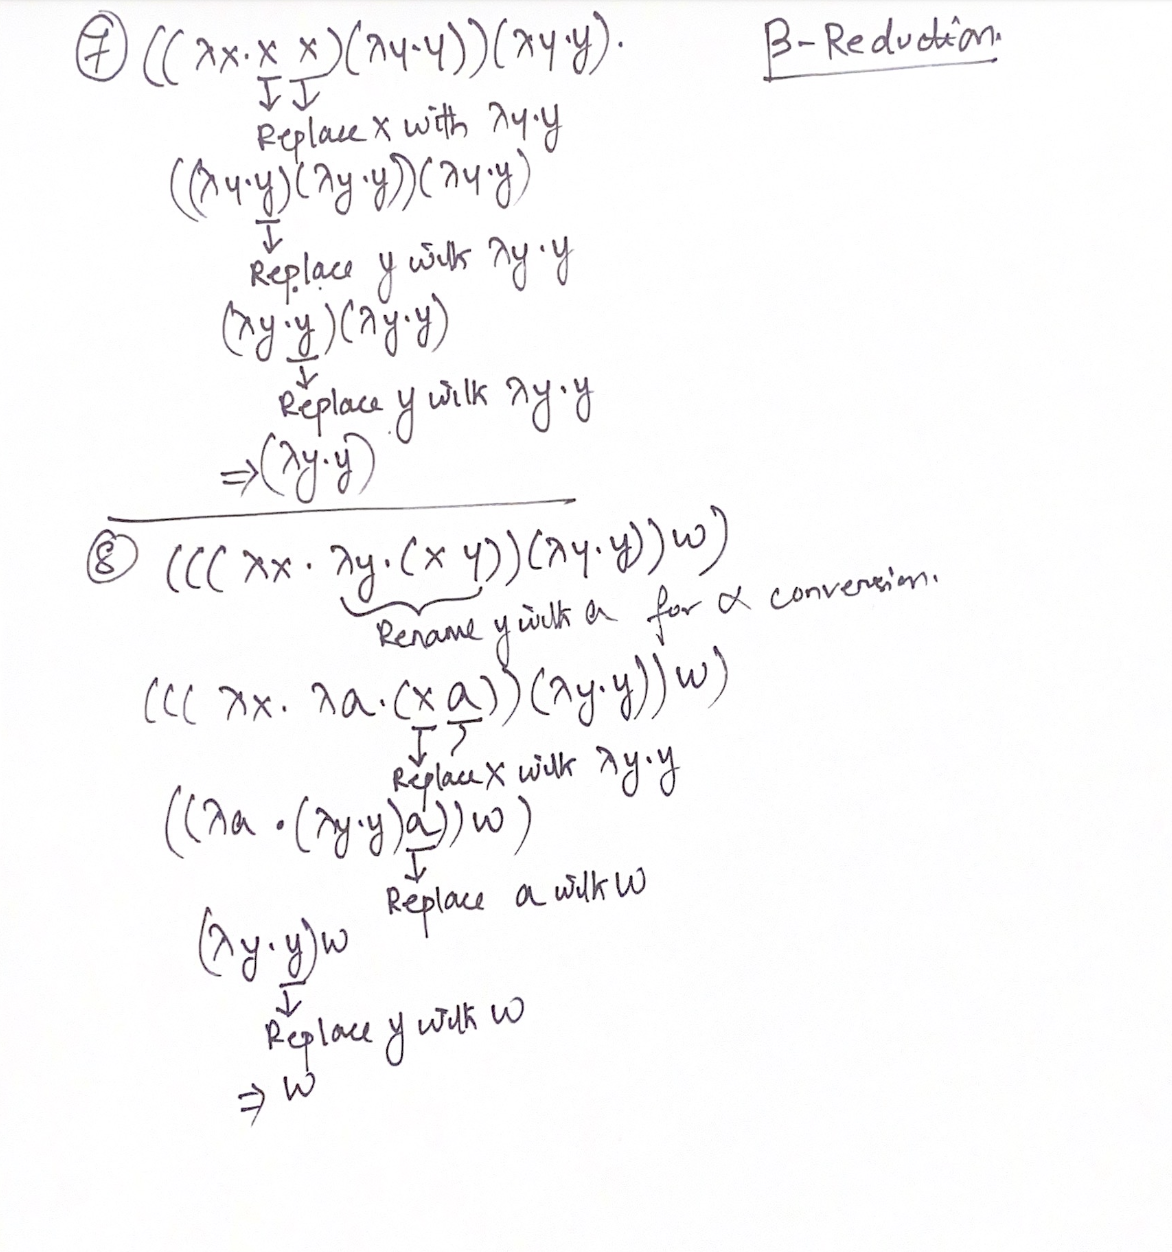 ⑦ ((λx.x x)(λy.y))(λy.y).
β-Reduction.
Replace x with λy.y
((λy.y)(λy.y))(λy.y)
Replace y with λy.y
(λy.y)(λy.y)
Replace y with λy.y
⇒(λy.y)
⑧ (((λx. λy.(x y))(λy.y))w)
Rename y with a for α conversion.
(((λx. λa.(x a))(λy.y))w)
Replace x with λy.y
((λa.(λy.y)a))w)
Replace a with w
(λy.y)w
Replace y with w
⇒ w